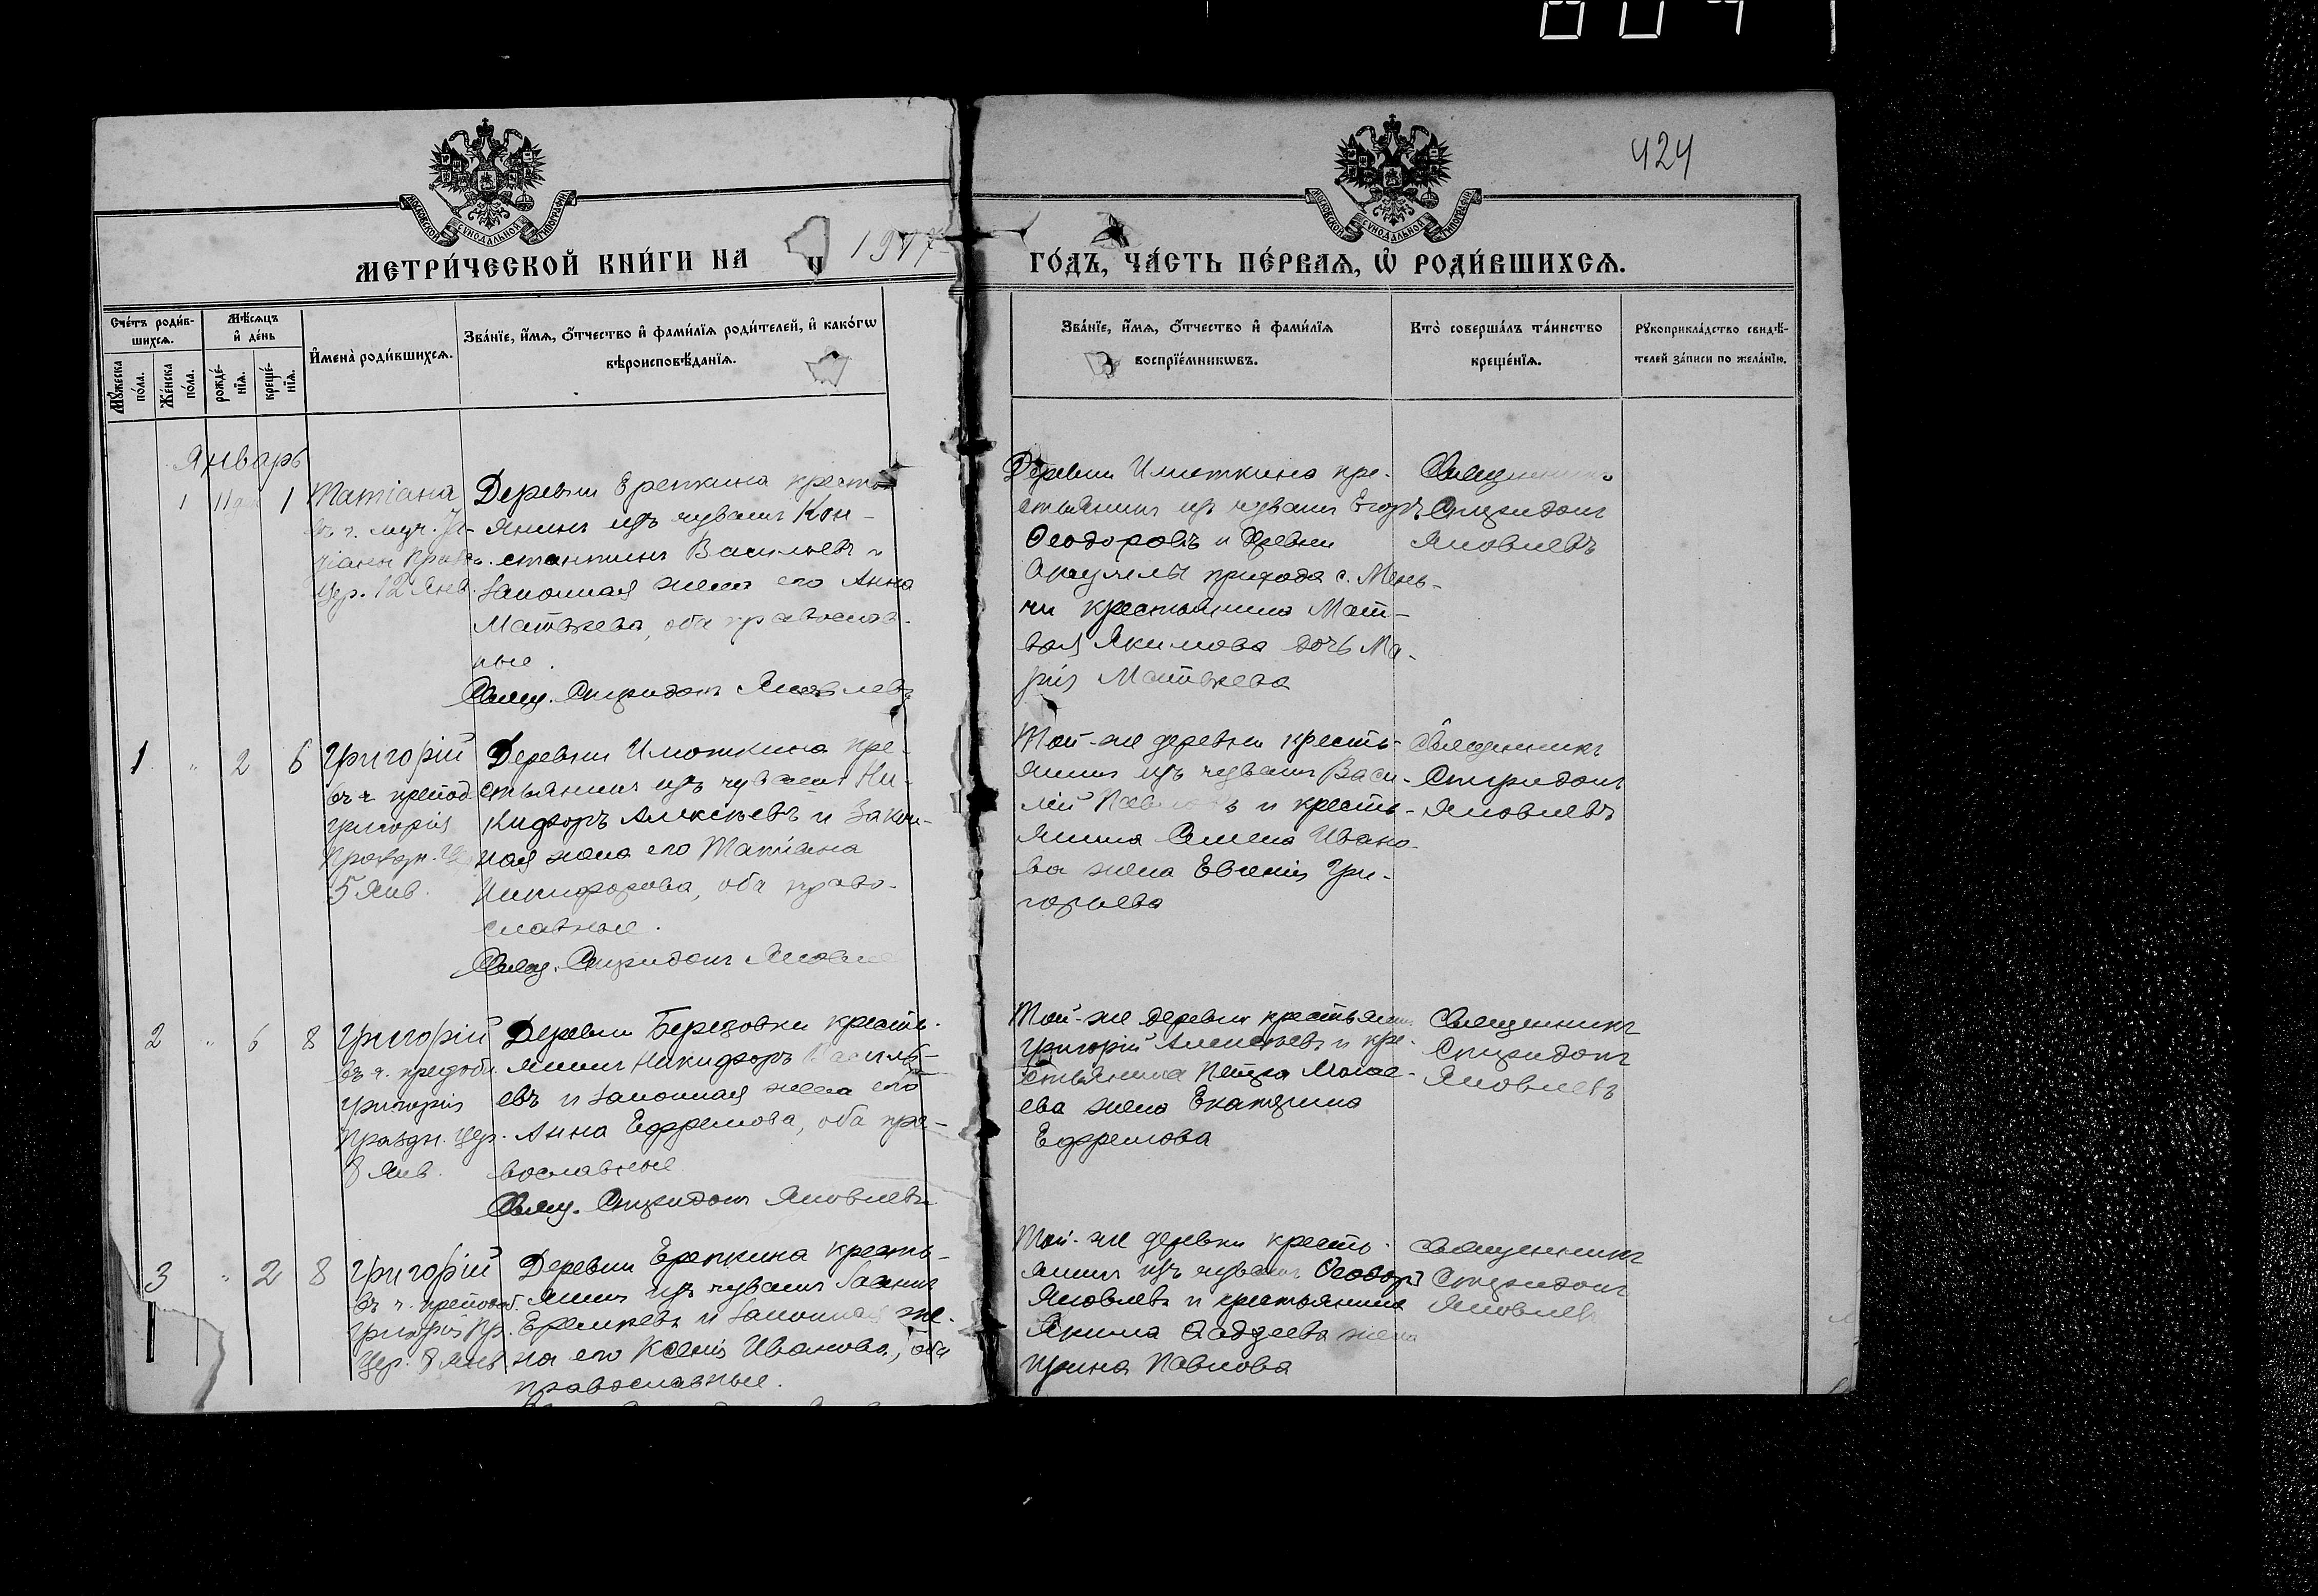 424
МОСКОВСКОЙ СѴНОДАЛЬНОЙ ТИПОГРАФІИ
МОСКОВСКОЙ СѴНОДАЛЬНОЙ ТИПОГРАФІИ
МЕТРИ́ЧЕСКОЙ КНИ́ГИ НА 1917
ГО́ДЪ, ЧА́СТЬ ПЕ́РВАѦ, Ѡ҆ РОДИ́ВШИХСѦ.
Сче́тъ роди́в-
шихсѧ.
Мѣ́сѧцъ
и҆ де́нь
Мꙋ́жеска
по́ла.
Же́нска
по́ла.
рожде́-
нїѧ.
креще́-
нїѧ.
И҆мена̀ роди́вшихсѧ.
Зва́нїе, и҆́мѧ, ѻ҆́тчество и҆ фами́лїѧ роди́телей, и҆ како́гѡ
вѣроисповѣ́данїѧ.
Зва́нїе, и҆́мѧ, ѻ҆́тчество и҆ фами́лїѧ
воспрїе́мникѡвъ.
Кто̀ соверша́лъ та́инство
креще́нїѧ.
Рꙋкоприкла́дство свидѣ́-
телей за́писи по жела́нїю.
Январь
1 1
Татіана
въ ч. муч. Та-
тіаны Праздн.
цер. 12 Янв.
Деревни Ерепкина кресть-
янинъ изъ чувашъ Кон-
стантинъ Васильевъ и
законная жена его Анна
Матвѣева, оба православ-
ные.
Свящ. Спиридонъ Яковлевъ
Деревни Имоткина кре-
стьянинъ изъ чувашъ Егоръ
Ѳеодоровъ и деревни
прихода с. Мень-
чи крестьянина Мат-
вея Якимова дочь Ма-
рія Матвѣева
Священникъ
Спиридонъ
Яковлевъ
1 " 2 6
Григорій
въ ч. препод.
Григорія
Праздн. Цер.
5 Янв.
Деревни Имоткина кре-
стьянинъ изъ чувашъ Ни-
кифоръ Алексѣевъ и закон-
ная жена его Татіана
Никифорова, оба право-
славные.
Свящ. Спиридонъ Яковле
Той-же деревни кресть-
янинъ изъ чувашъ Васи-
лій Павловъ и кресть-
янина Семена Ивано-
ва жена Евгенія Гри-
горьева
Священникъ
Спиридонъ
Яковлевъ
2 " 6 8
Григорій
въ ч. преподоб.
Григорія
Праздн. Цер.
8 Янв.
Деревни Березовки кресть-
янинъ Никифоръ Василь-
евъ и законная жена его
Анна Ефремова, оба пра-
вославные
Свящ. Спиридонъ Яковлевъ
Той-же деревни крестьянин
Григорій Алексѣевъ и кре-
стьянина Петра
ева жена Екатерина
Ефремова
Священникъ
Спиридонъ
Яковлевъ
3 " 2 8
Григорій
въ ч. преподоб.
Григорія Пр.
Цер. 8 Янв
Деревни Ерепкина кресть-
янинъ изъ чувашъ
и законная же-
на его Ксенія Иванова, оба
православные.
Той-же деревни кресть-
янинъ изъ чувашъ Ѳеодоръ
Яковлевъ и крестьянина
Якима Авдеева жена
Ирина Павлова
Священникъ
Спиридонъ
Яковлевъ